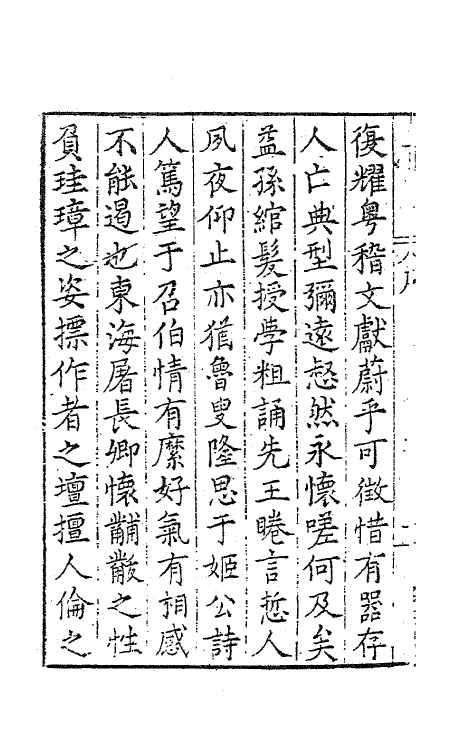 復耀粤稽文獻蔚乎可徵惜有器存
人亡典型彌遠愸然永懷嗟何及矣
益孫綰髮授學粗誦先王睠言悊人
夙夜仰止亦猶魯叟隆思于姬公詩
人篤望于召伯情有縻好氣有相感
不能遏也東海屠長卿懷黼黻之性
負珪璋之姿摽作者之壇擅人倫之